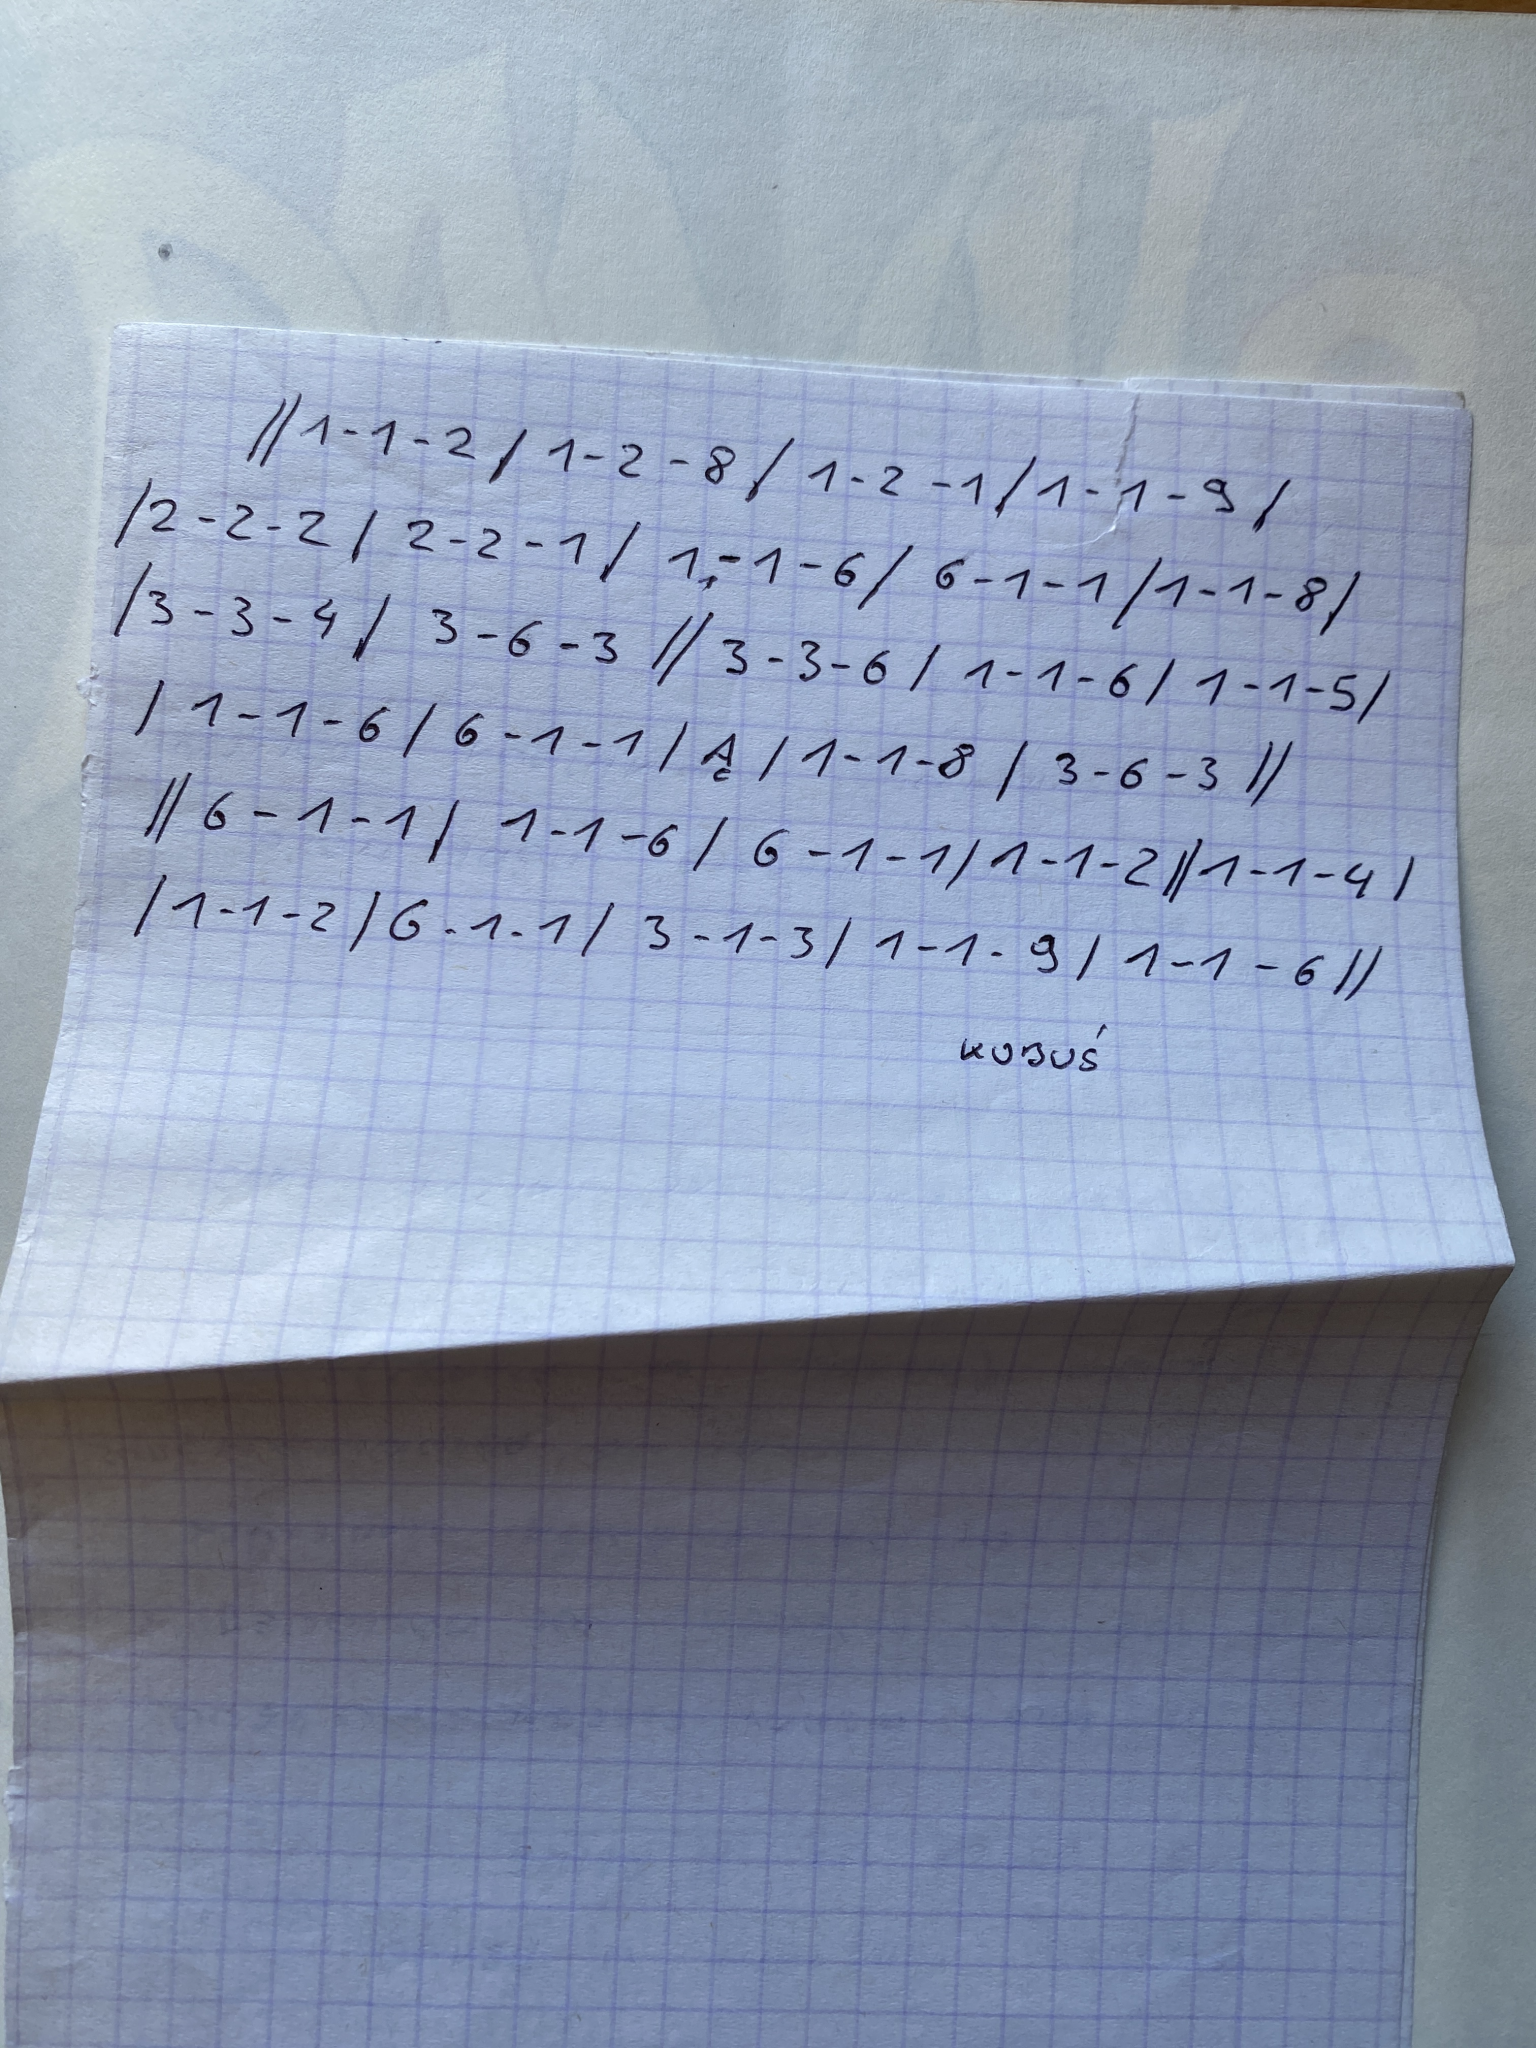 //1-1-2/ 1-2-8/ 1-2-1/1-1-9/
/2-2-2/ 2-2-1/ 1-1-6/ 6-1-1/1-1-8/
/3-3-4/ 3-6-3 // 3-3-6/ 1-1-6/ 1-1-5/
/ 1-1-6/ 6-1-1/ Ą / 1-1-8 / 3-6-3 //
// 6-1-1/ 1-1-6/ 6-1-1/ 1-1-2//1-1-4/
/1-1-2/6-1-1/ 3-1-3/ 1-1-9/ 1-1-6//
KUBUŚ